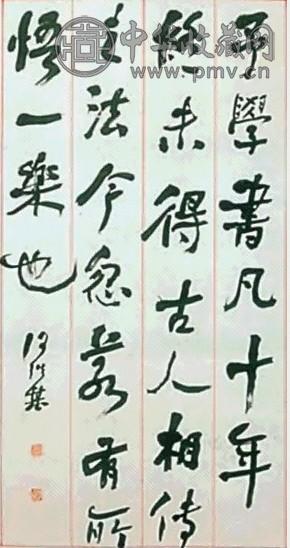 中华收藏网
www.pmv.cn
予學書凡十年
終未得古人相傳
之法今忽若有所
悟一樂也